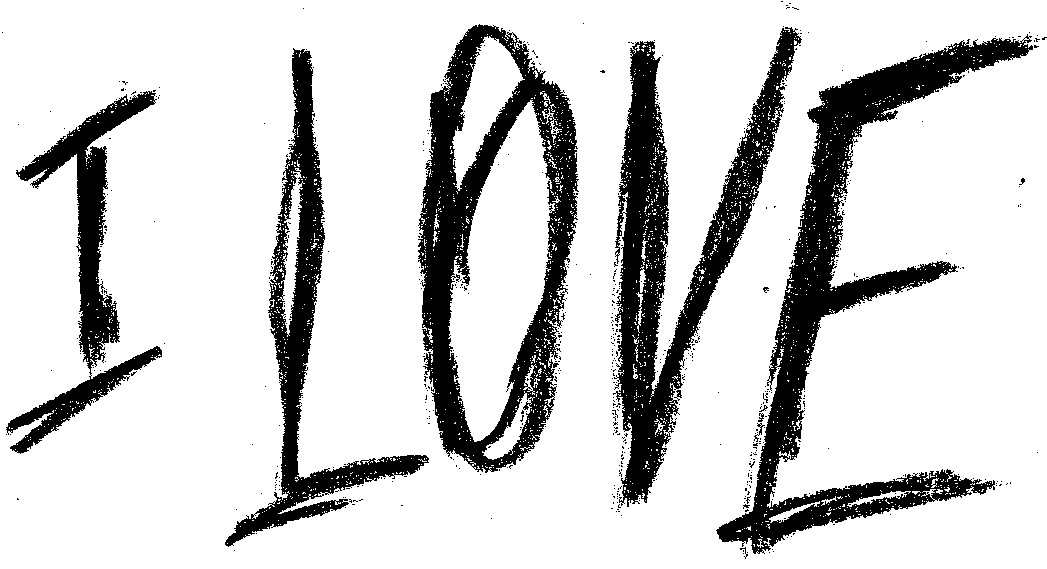 I LOVE